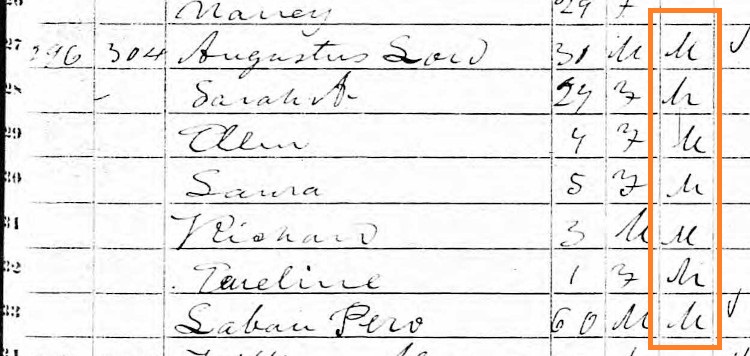 Nancy 29 F
27 296 304 Augustus Lord 31 M M
28 Sarah A 27 F M
29 Ellen 4 F M
30 Laura 5 F M
31 Richard 3 M M
32 Emeline 1 F M
33 Laban Pero 60 M M